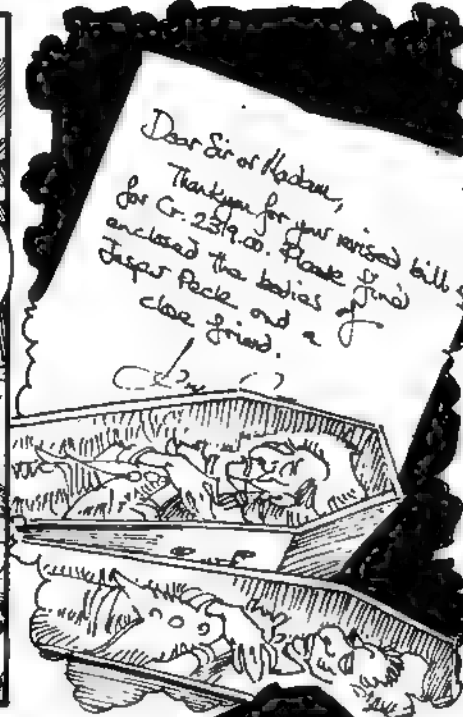 Dear Sir or Madam,
Thankyou for your revised bill
for Cr. 2319.00. Please find
enclosed the bodies of
Jasper Peck and a
close friend.